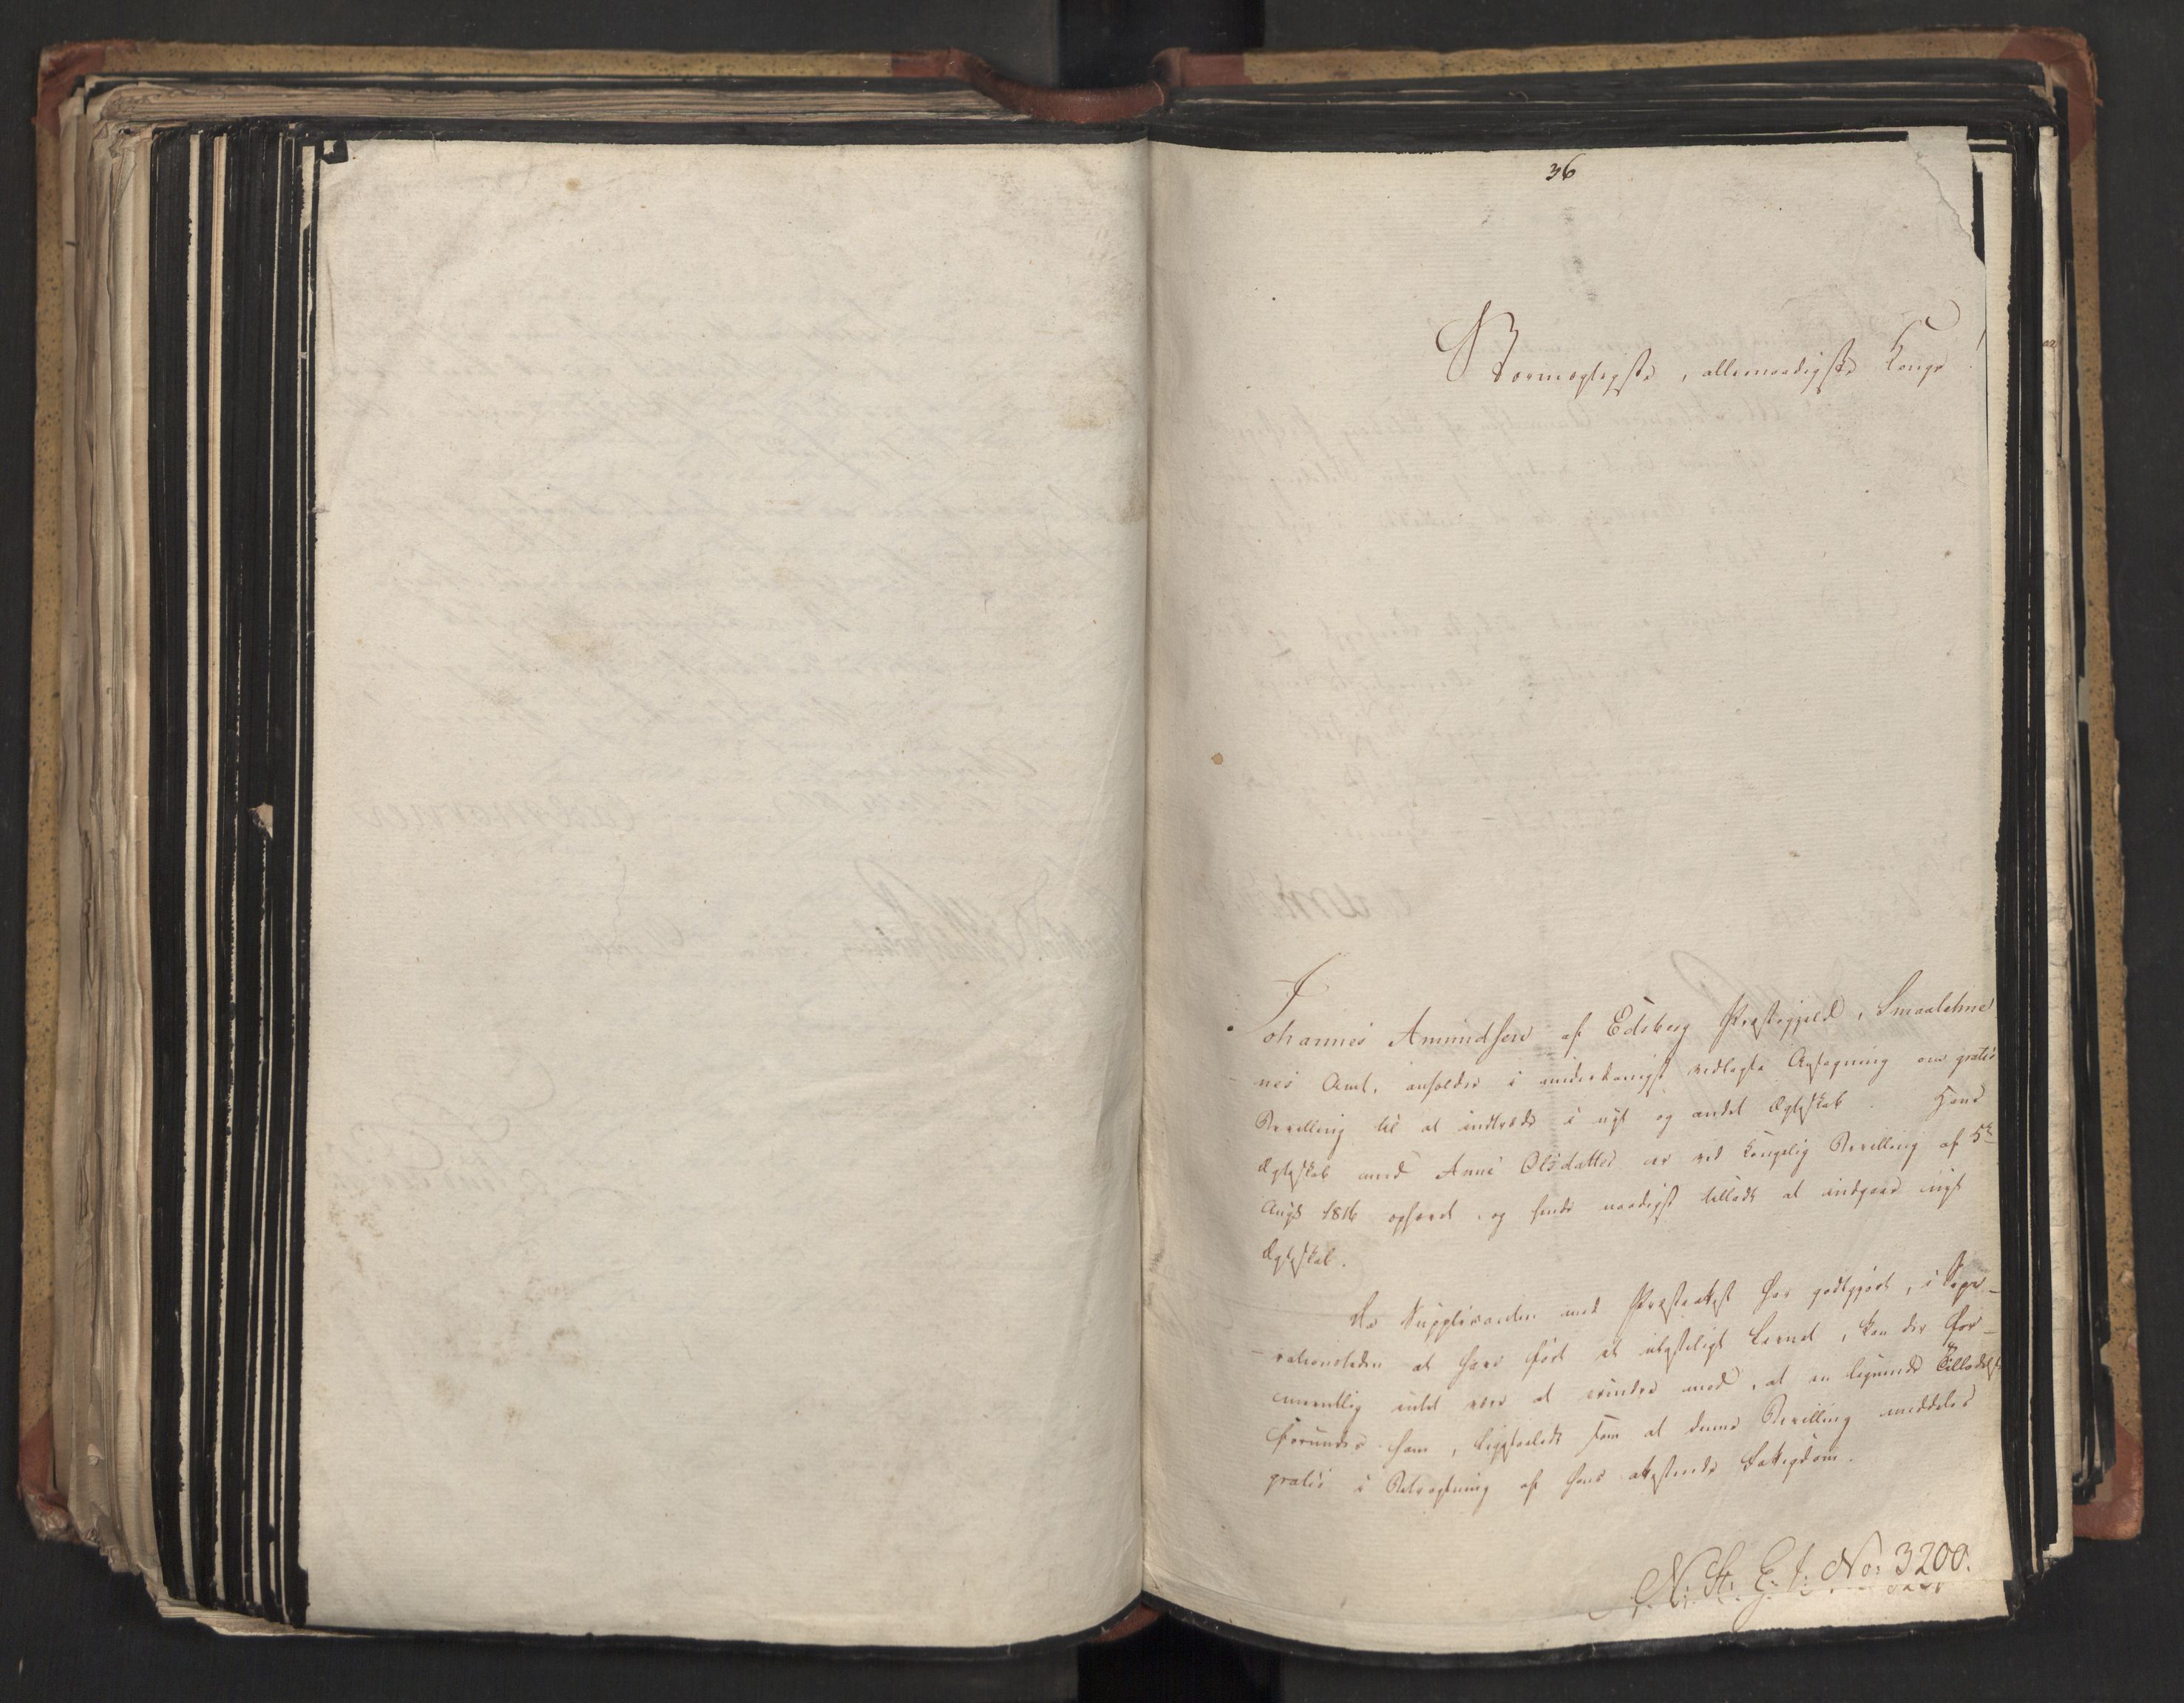 36
Stormægtigste, allernaadigste Konge!
Johannes Amundsen af Edsberg Præstegjeld, Smaalehne
nes Amt, anholder i underdanigst vedlagte Ansøgning om gratis
Bevilling til at indtræde i nyt og andet Ægteskab. Hans
Ægteskab med Anne Olsdatter er ved Kongelig Bevilling af 5te
Augt 1816 ophævet og hende naadigst tilladt at indgaae nyt
Ægteskab.
Da Supplicanten med Præsteattest har godtgjort, i Sepa-
rationstiden at have ført et ustraffeligt Levnet, kan der for-
meentlig intet være at erindre mod, at en lignende Tilladelse
forundes ham, ligesaalidt som at denne Bevilling meddeles
gratis i Betragtning af hans attesterede Fattigdom.
N: St: E: J: No: 3200.